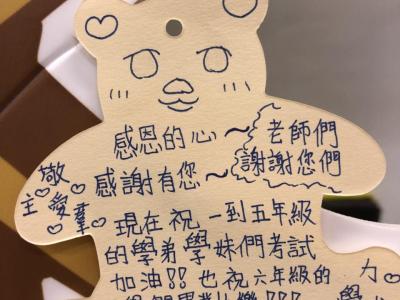 感恩的心～
感謝有您～
老師們
謝謝您們
敬
主愛羣
現在祝一到五年級
的學弟學妹們考試
加油!! 也祝六年級的